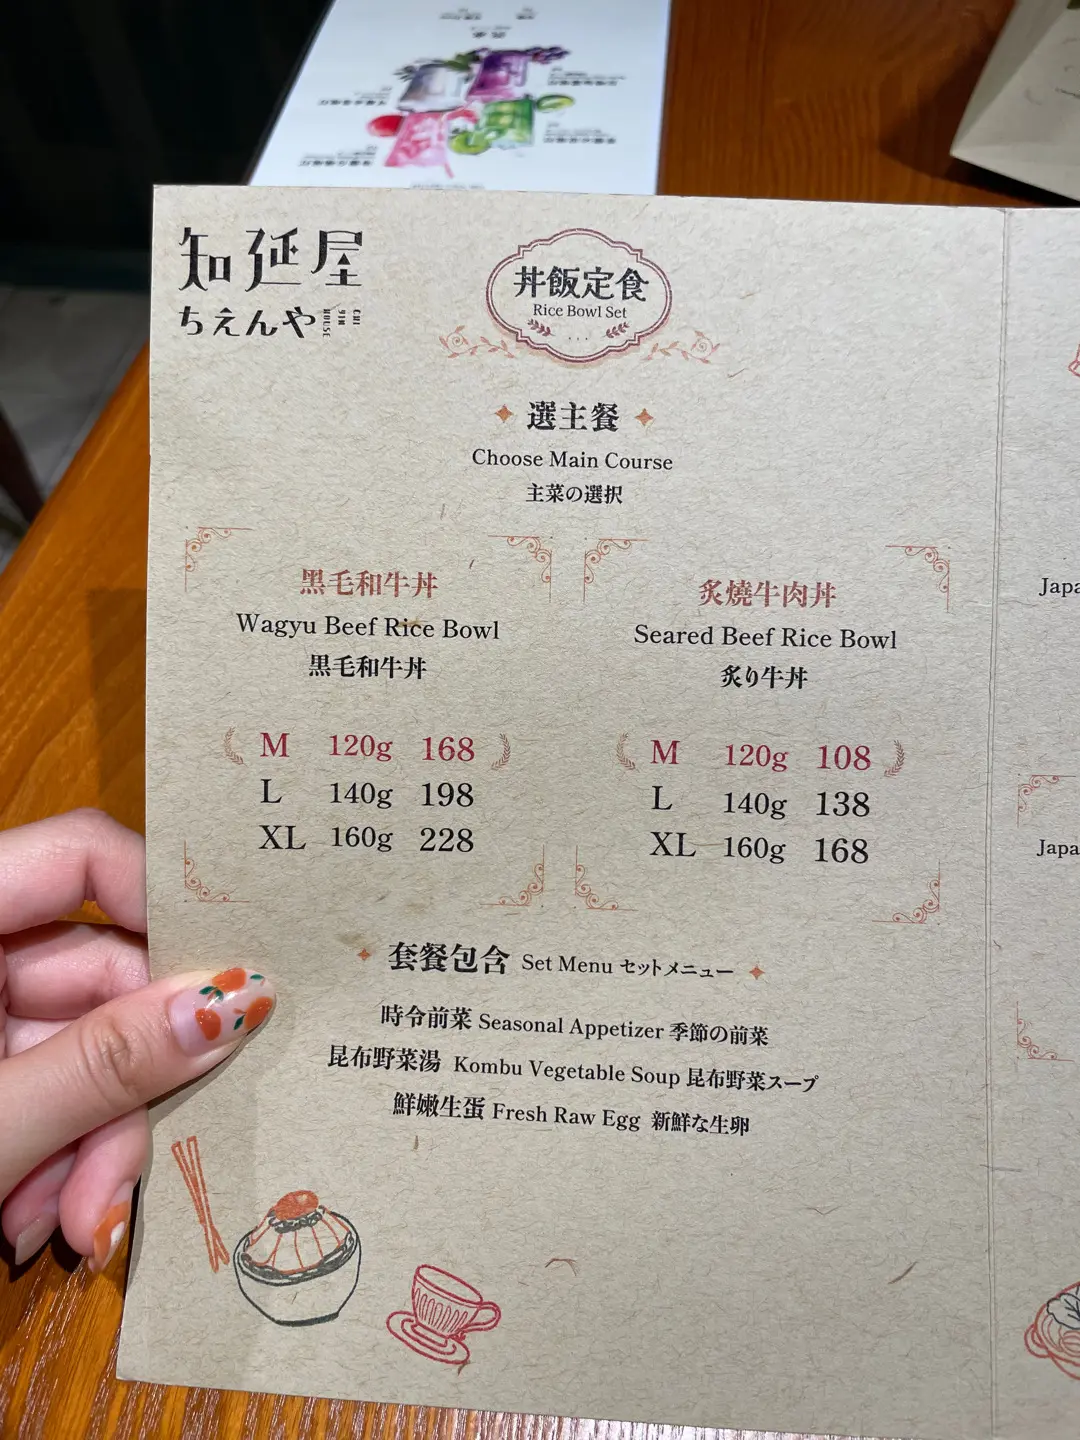 知延屋
ちえんや CHI YIN HOUSE
丼飯定食
Rice Bowl Set
選主餐
Choose Main Course
主菜の選択
黑毛和牛丼
Wagyu Beef Rice Bowl
黒毛和牛丼
M 120g 168
L 140g 198
XL 160g 228
炙燒牛肉丼
Seared Beef Rice Bowl
炙り牛丼
M 120g 108
L 140g 138
XL 160g 168
套餐包含 Set Menu セットメニュー
時令前菜 Seasonal Appetizer 季節の前菜
昆布野菜湯 Kombu Vegetable Soup 昆布野菜スープ
鮮嫩生蛋 Fresh Raw Egg 新鮮な生卵
Japa
Japa